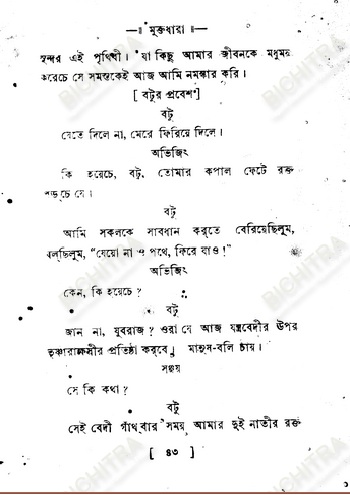 মুক্তধারা
সুন্দর এই পৃথিবী। যা কিছু আমার জীবনকে মধুময়
করেচে সে সমস্তকেই আজ আমি নমস্কার করি।
[ বটুর প্রবেশ ]
বটু
যেতে দিলে না, মেরে ফিরিয়ে দিলে।
অভিজিৎ
কি হয়েচে, বটু, তোমার কপাল ফেটে রক্ত
পড়চে যে।
বটু
আমি সকলকে সাবধান করতে বেরিয়েছিলুম,
বলছিলুম, “যেয়ো না ও পথে, ফিরে যাও!”
অভিজিৎ
কেন, কি হয়েচে ?
বটু
জান না, যুবরাজ ? ওরা যে আজ যন্ত্রবেদীর উপর
তৃষ্ণারাক্ষসীর প্রতিষ্ঠা করবে। মানুষ-বলি চায়।
সঞ্জয়
সে কি কথা ?
বটু
সেই বেদী গাঁথবার সময় আমার দুই নাতীর রক্ত
[ ৪৩ ]
BICHITRA